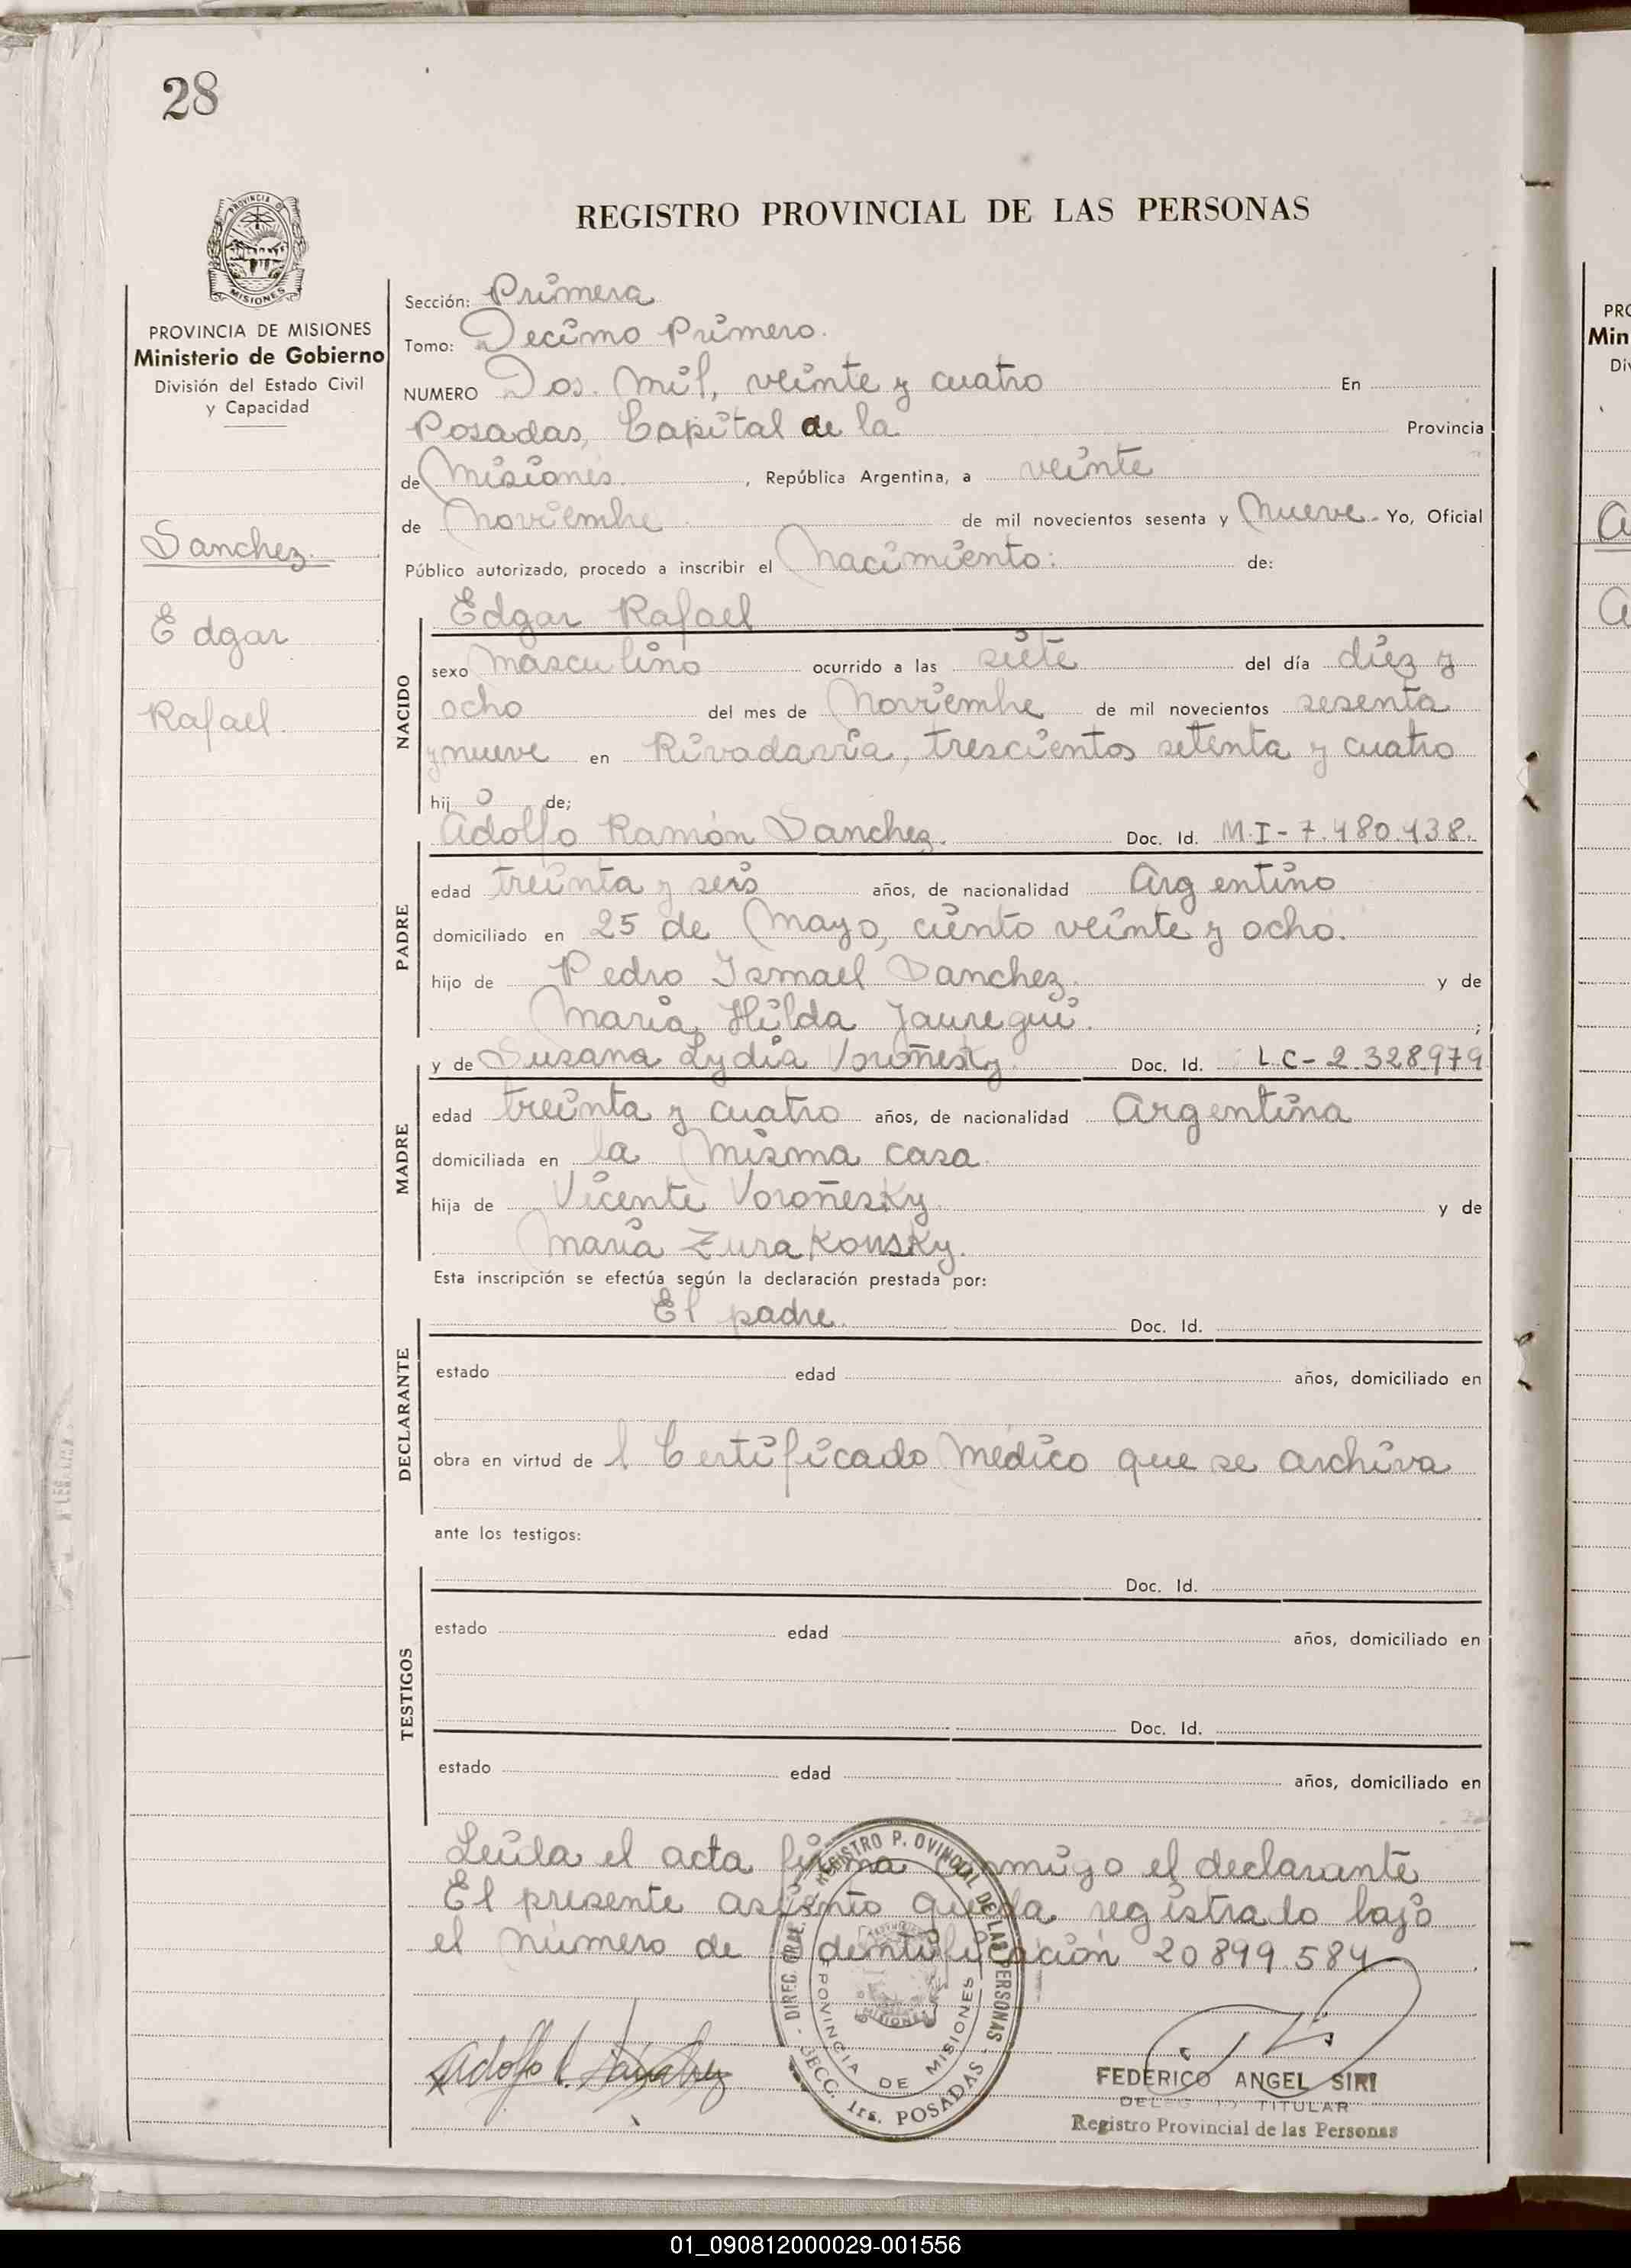 28
PROVINCIA DE
MISIONES
REGISTRO PROVINCIAL DE LAS PERSONAS
PROVINCIA DE MISIONES
Ministerio de Gobierno
División del Estado Civil
y Capacidad
Sanchez.
Edgar
Rafael
Sección: Primera
Tomo: Decimo Primero.
NUMERO Dos. Mil, veinte y cuatro En
Posadas, Capital de la Provincia
de Misiones. , República Argentina, a veinte
de Noviembre de mil novecientos sesenta y Nueve - Yo, Oficial
Público autorizado, procedo a inscribir el Nacimiento: de:
NACIDO
Edgar Rafael
sexo Masculino ocurrido a las siete del día diez y
ocho del mes de Noviembre de mil novecientos sesenta
y nueve en Rivadavia, trescientos setenta y cuatro
hij o de;
PADRE
Adolfo Ramón Sanchez. Doc. Id. M.I-7.480.438.
edad treinta y seis años, de nacionalidad Argentino
domiciliado en 25 de Mayo, ciento veinte y ocho.
hijo de Pedro Ismael Sanchez. y de
Maria Hilda Jauregui. ;
MADRE
y de Susana Lydia Voroñesky. Doc. Id. L.C-2.328.979
edad treinta y cuatro años, de nacionalidad Argentina
domiciliada en la misma casa.
hija de Vicente Voroñesky. y de
Maria Zurakousky.
Esta inscripción se efectúa según la declaración prestada por:
DECLARANTE
El padre. Doc. Id.
estado edad años, domiciliado en
obra en virtud de l Certificado Médico que se archiva
ante los testigos:
TESTIGOS
Doc. Id.
estado edad años, domiciliado en
Doc. Id.
estado edad años, domiciliado en
Leida el acta firma conmigo el declarante
El presente asiento queda registrado bajo
el número de identificación 20899.584
DIREC. GRAL. REGISTRO P. OVINCIAL DE LAS PERSONAS - SECC. 1ra. POSADAS -
PROVINCIA DE MISIONES
MISIONES
Adolfo R. Sanchez
FEDERICO ANGEL SIRI
TITULAR
Registro Provincial de las Personas
PRO
Min
Div
01_090812000029-001556